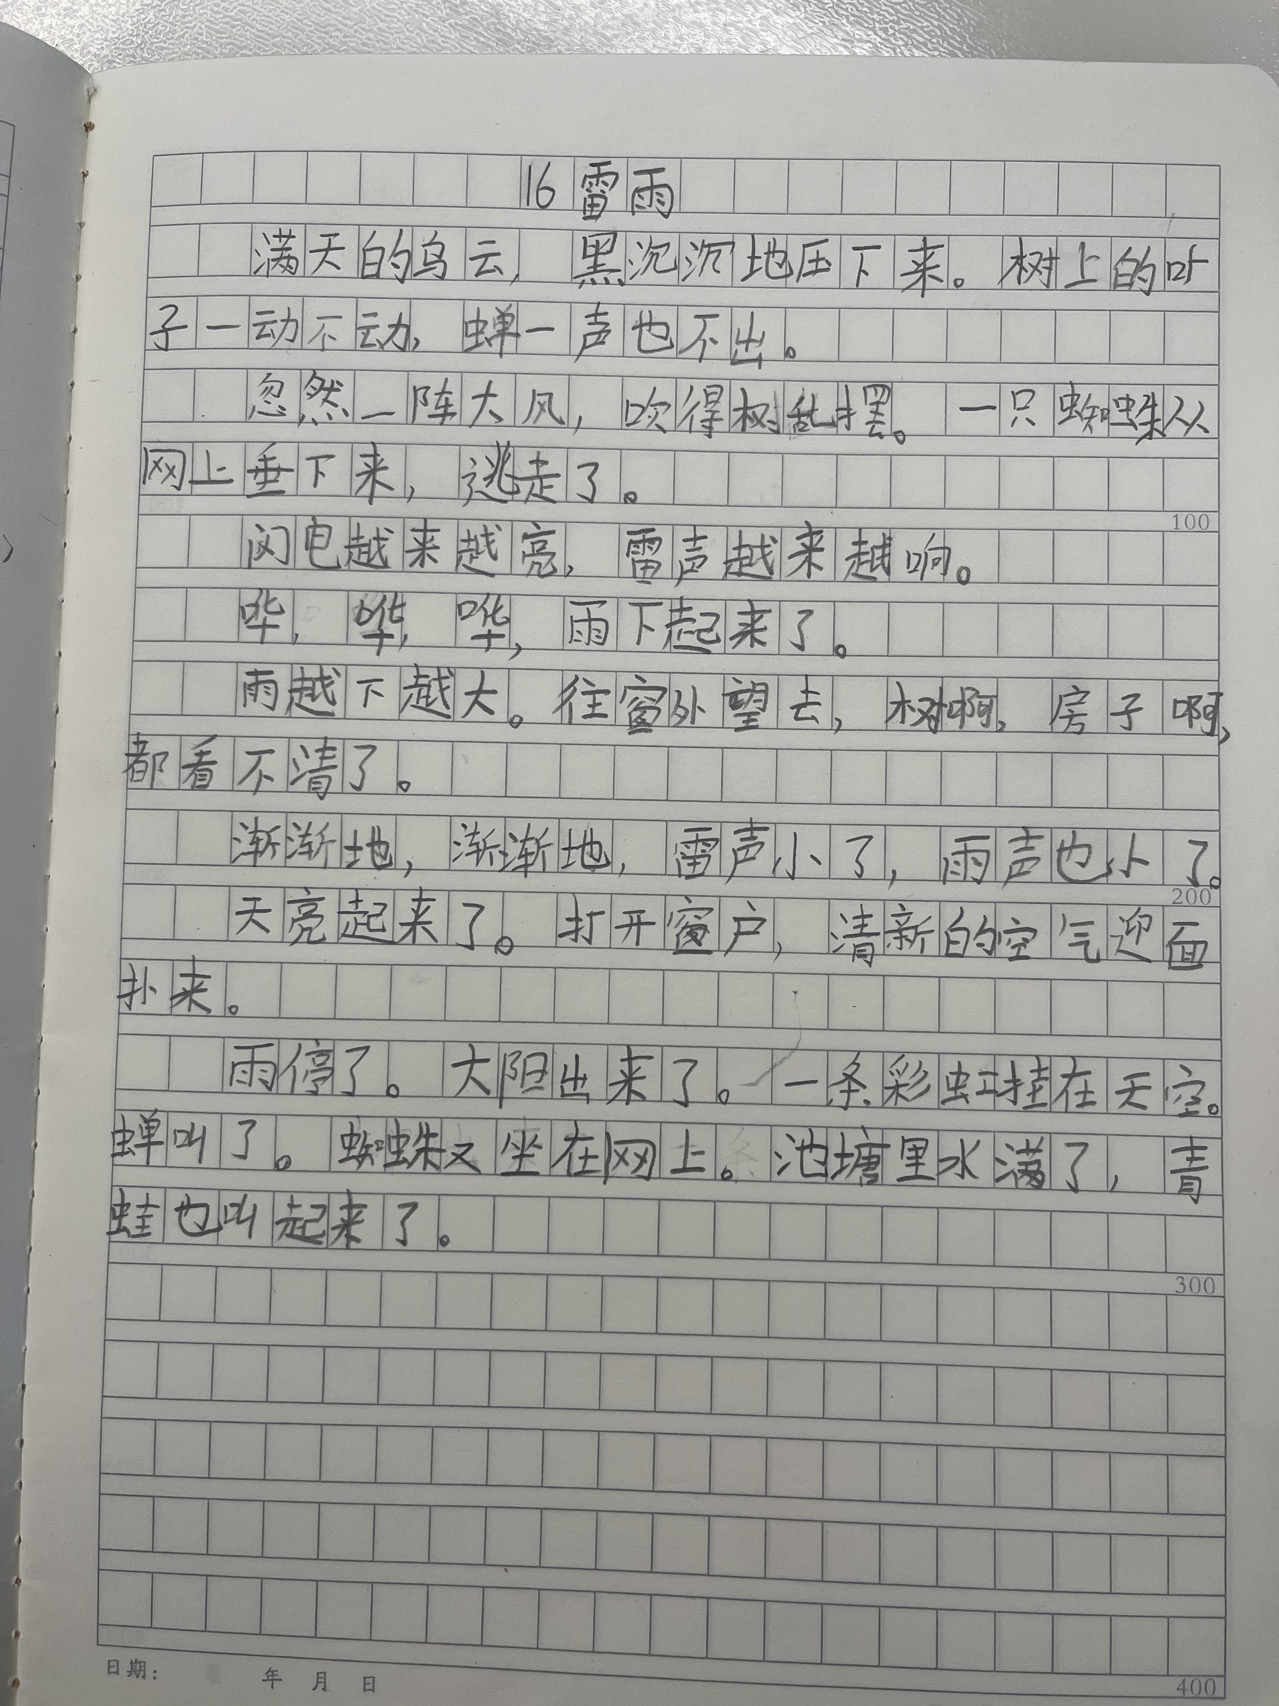 16 雷雨
满天的乌云，黑沉沉地压下来。树上的叶
子一动不动，蝉一声也不出。
忽然一阵大风，吹得树乱摆。一只蜘蛛从
网上垂下来，逃走了。
100
闪电越来越亮，雷声越来越响。
哗，哗，哗，雨下起来了。
雨越下越大。往窗外望去，树啊，房子啊，
都看不清了。
渐渐地，渐渐地，雷声小了，雨声也小了。
200
天亮起来了。打开窗户，清新的空气迎面
扑来。
雨停了。大阳出来了。一条彩虹挂在天空。
蝉叫了。蜘蛛又坐在网上。池塘里水满了，青
蛙也叫起来了。
300
日期： 年 月 日
400